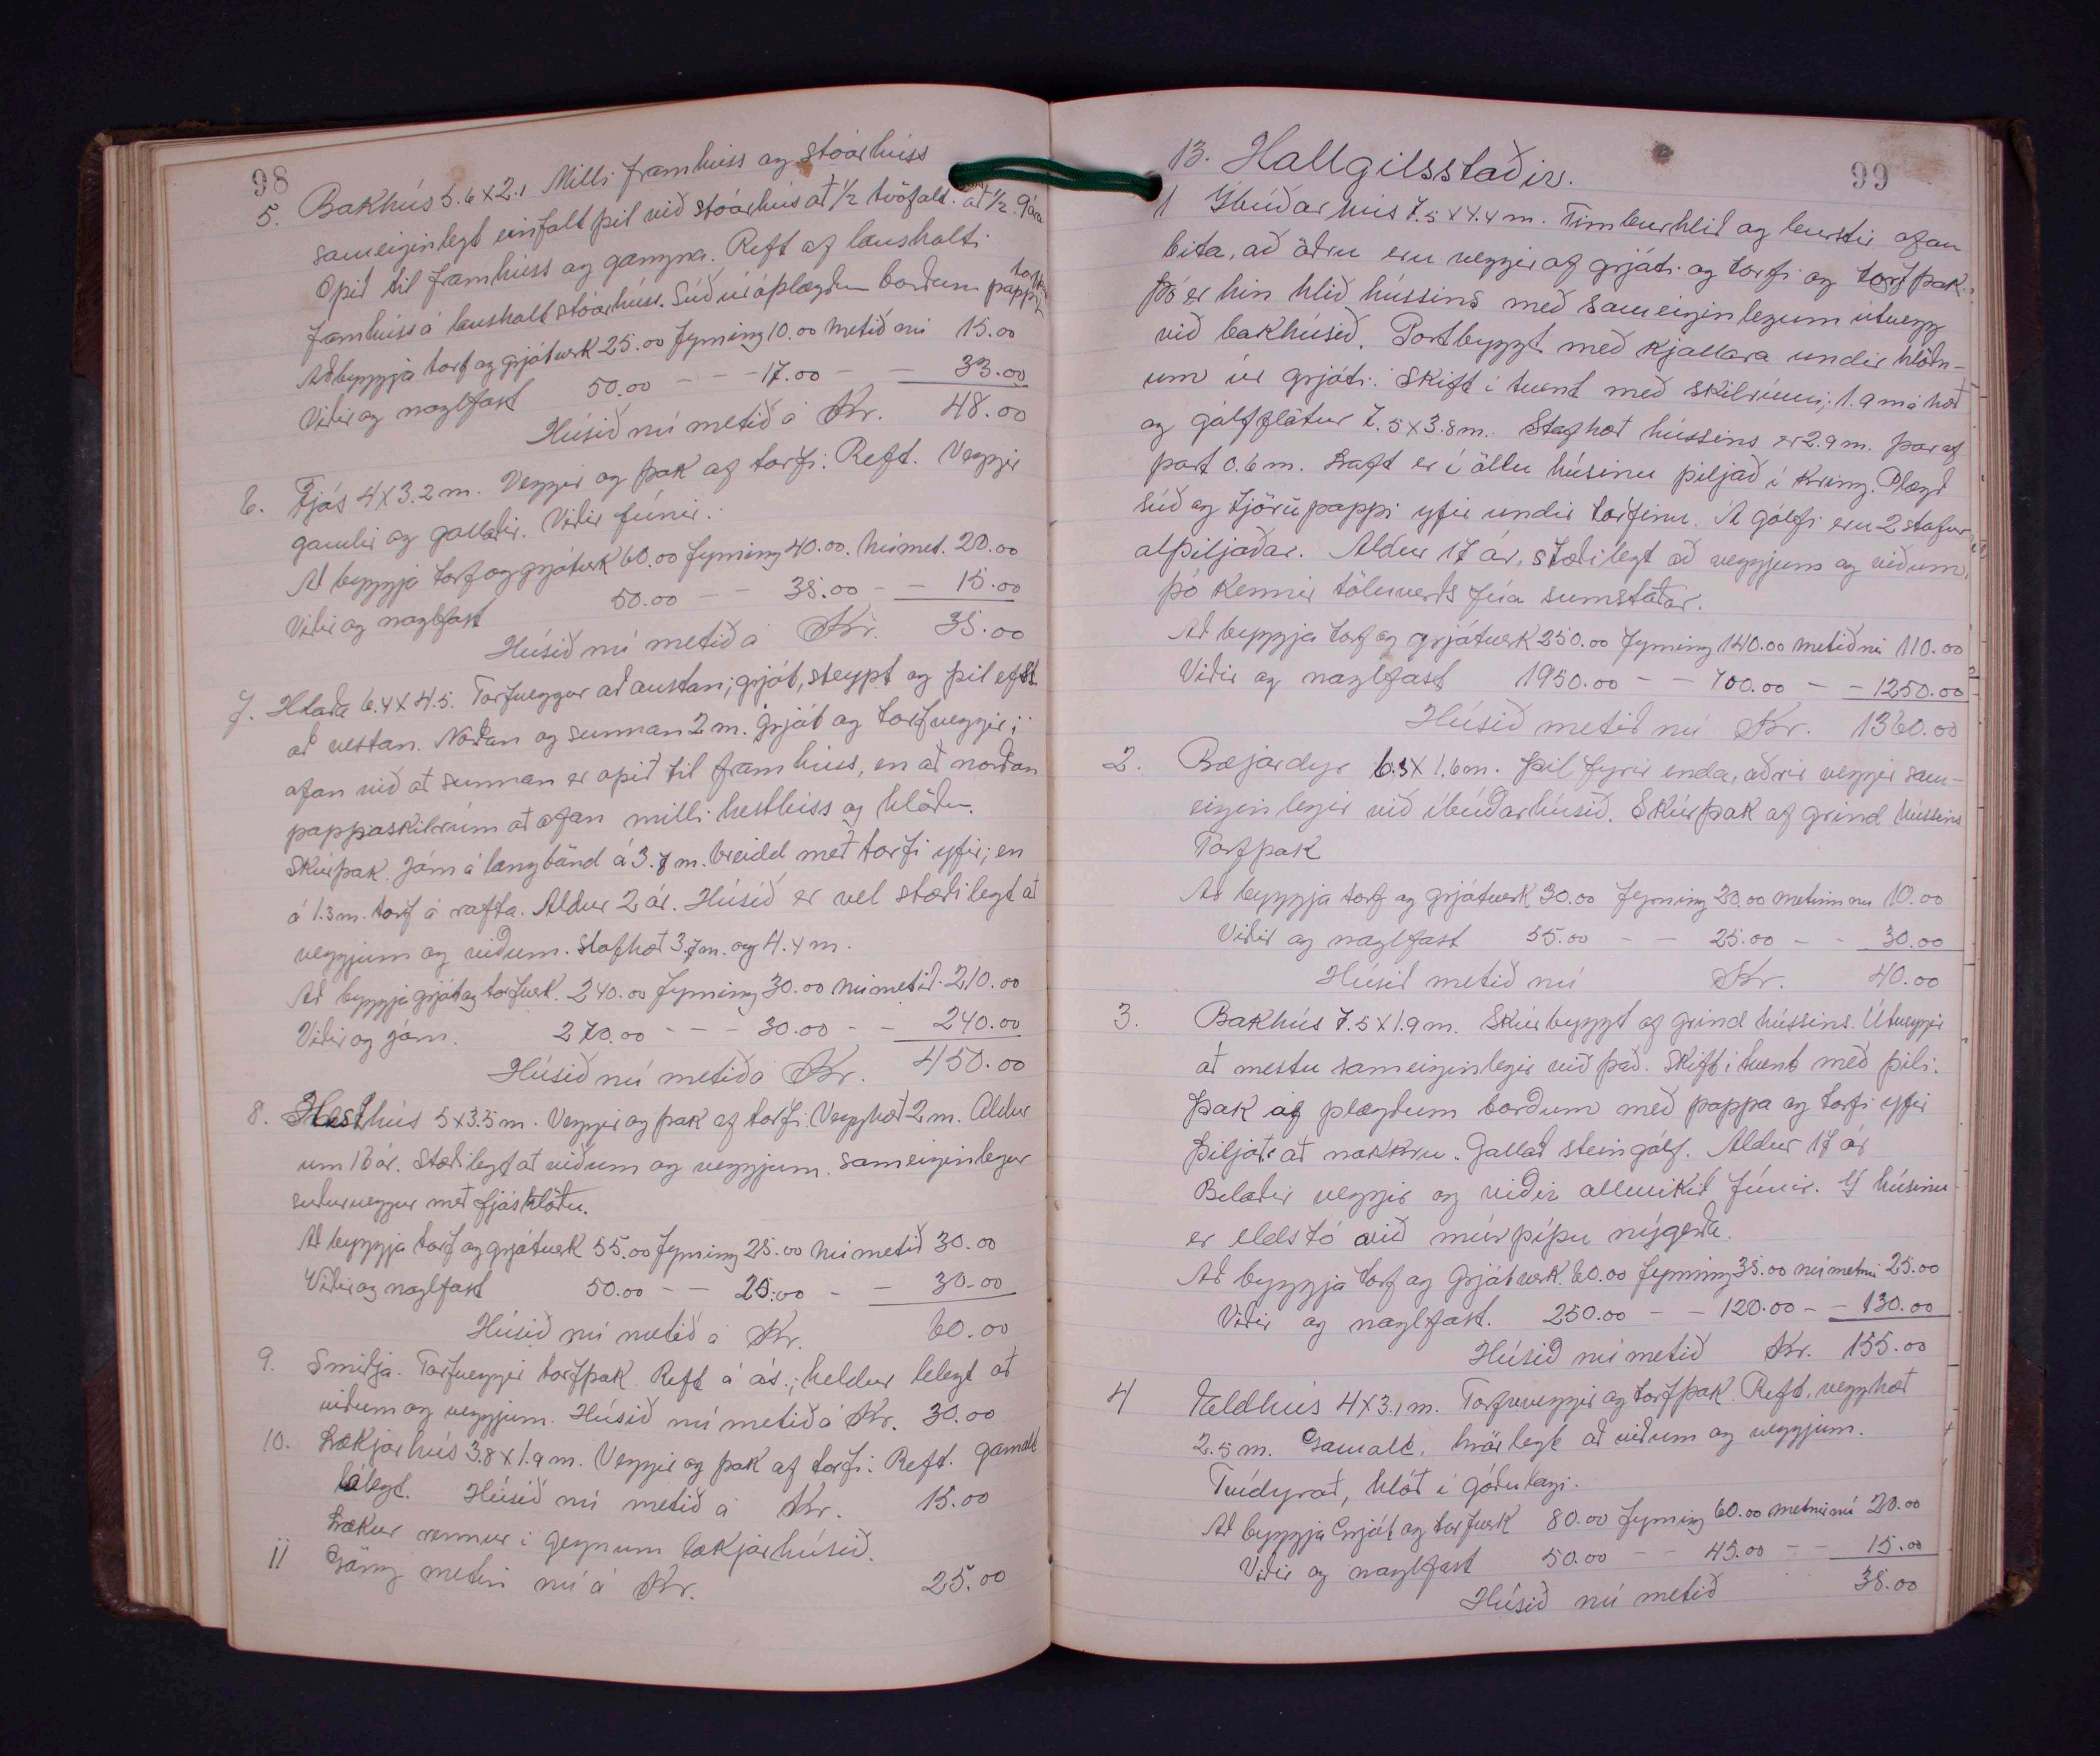 98
5. Bakhús 5.6 x 2.1 Milli framhúss og stóarhúss
sameiginlegt einfalt þil við stóarhús að 1/2 tvöfalt að 1/2. 9 ára
Opið til framhúss og gangna. Reft af lausholti
framhúss á lausholt stóarhúss. Súð úr óplægðum borðum pappi torf
Að byggja torf og grjótverk 25.00 fyrning 10.00 metið nú 15.00
Viðir og naglfast 50.00 - - - 17.00 - - 33.00
Húsið nú metið á Kr. 48.00
6. Fjós 4 x 3.2 m. Veggir og þak af torfi. Reft. Veggir
gamlir og gallaðir. Viðir fúnir.
Að byggja torf og grjótverk 60.00 fyrning 40.00. nú met. 20.00
Viðir og naglfast 50.00 - - 35.00 - - 15.00
Húsið nú metið á Kr. 35.00
7. Hlaða 6.4 x 4.5. Torfveggur að austan; grjót, steypt og þil efst
að vestan. Norðan og sunnan 2 m. grjót og torfveggir;
ofan við að sunnan er opið til framhúss, en að norðan
pappaskilrúm að ofan milli hesthúss og hlöðu.
Skúrþak. Járn á langbönd á 3.7 m. breidd með torfi yfir; en
á 1.3 m. torf á rafta. Aldur 2 ár. Húsið er vel stæðilegt að
veggjum og viðum. Stafhæð 3.7 m. og 4.4 m.
Að byggja grjót og torfverk. 240.00 fyrning 30.00 nú metið 210.00
Viðir og járn. 270.00 - - - 30.00 - - 240.00
Húsið nú metið á Kr. 450.00
8. Hesthús 5 x 3.5 m. Veggir og þak af torfi. Vegghæð 2 m. Aldur
um 18 ár. Stæðilegt að viðum og veggjum. Sameiginlegur
suðurveggur með fjóshlöðu.
Að byggja torf og grjótverk 55.00 fyrning 25.00 nú metið 30.00
Viðir og naglfast 50.00 - - 20.00 - - 30.00
Húsið nú metið á Kr. 60.00
9. Smiðja. Torfveggir torfþak. Reft á ás.; heldur lélegt að
viðum og veggjum. Húsið nú metið á Kr. 30.00
10. Lækjarhús 3.8 x 1.9 m. Veggir og þak af torfi. Reft. gamalt
lélegt. Húsið nú metið á Kr. 15.00
Lækur rennur í gegnum lækjarhúsið.
11 Göng metin nú á Kr. 25.00
99
13. Hallgilsstaðir.
1 Íbúðarhús 7.5 x 4.4 m. Timburhlið og burstir ofan
bita, að öðru eru veggir af grjóti og torfi og torfþak.
Þó er hin hlið hússins með sameiginlegum útvegg
við bakhúsið. Portbyggt með kjallara undir hlöðn-
um úr grjóti. Skift í tvent með skilrúmi; 1.9 m á hæð
og gólfflötur 7.5 x 3.8 m. Stafhæð hússins er 2.9 m. þar af
port 0.6 m. Loft er í öllu húsinu þiljað í kring. Plægð
súð og tjörupappi yfir undir torfinu. Á gólfi eru 2 stofur
alþiljaðar. Aldur 17 ár. stæðilegt að veggjum og viðum,
þó kennir töluverðs fúa sumstaðar.
Að byggja torf og grjótverk 250.00 fyrning 140.00 metið nú 110.00
Viðir og naglfast 1950.00 - - 700.00 - - 1250.00
Húsið metið nú Kr. 1360.00
2. Bæjardyr 6.3 x 1.6 m. Þil fyrir enda, aðrir veggir sam-
eiginlegir við íbúðarhúsið. Skúrþak af grind hússins
Torfþak
Að byggja torf og grjótverk 30.00 fyrning 20.00 metinn nú 10.00
Viðir og naglfast 55.00 - - 25.00 - - 30.00
Húsið metið nú Kr. 40.00
3. Bakhús 7.5 x 1.9 m. Skúrbyggt af grind hússins. Útveggir
að mestu sameiginlegir við það. Skift í tvent með þili.
Þak af plægðum borðum með pappa og torfi yfir
Þiljað að nokkru. Gallað steingólf. Aldur 17 ár
Bilaðir veggir og viðir allmikið fúnir. Í húsinu
er eldstó við múrpípu nýgerða.
Að byggja torf og grjótverk. 60.00 fyrning 35.00 nú metni 25.00
Viðir og naglfast. 250.00 - - 120.00 - - 130.00
Húsið nú metið Kr. 155.00
4 Eldhús 4 x 3.1 m. Torfveggir og torfþak. Reft, vegghæð
2.5 m. Gamalt, hrörlegt að viðum og veggjum.
Tvídyrað, hlóð í góðu lagi.
Að byggja Grjót og torfverk 80.00 fyrning 60.00 metni nú 20.00
Viðir og naglfast 50.00 - - 45.00 - - 15.00
Húsið nú metið 35.00